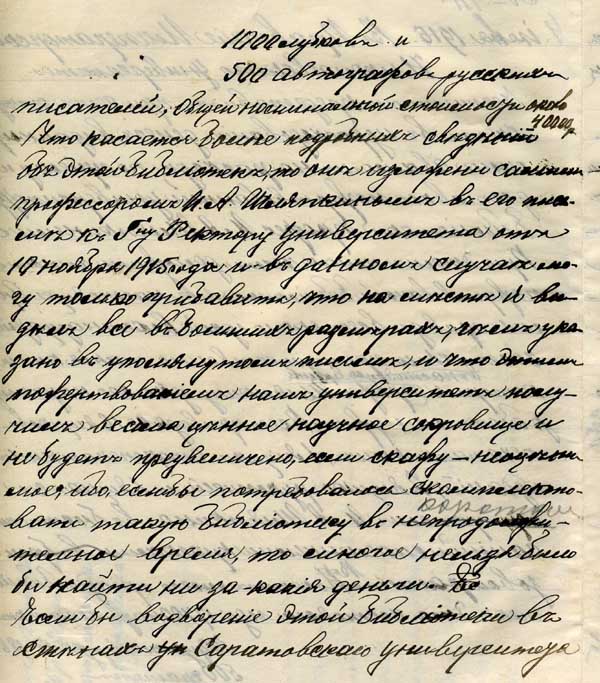 1000 лубковъ и
500 автографовъ русскихъ
писателей, общей номинальной стоимостью около
40000 р.
Что касается болѣе подробныхъ свѣдѣній
объ этой библіотекѣ, то они изложены самимъ
профессоромъ И. А. Шляпкинымъ въ его пись-
махъ къ Гну Ректору Университета отъ
10 ноября 1915 года и въ данномъ случаѣ мо-
гу только прибавить, что на мѣстѣ я ви-
дѣлъ все въ большихъ размѣрахъ, чѣмъ ука-
зано въ упомянутомъ письмѣ, и что этимъ
пожертвованіемъ нашъ университетъ полу-
чилъ весьма цѣнное научное сокровище и
не будетъ преувеличено, если скажу – неоцѣни-
мое, ибо, еслибы потребовалось скомплекто-
вать такую библіотеку въ непродолжи-
короткое
тельное время, то многое нельзя было
бы найти ни за какія деньги.
Если бы водвореніе этой библіотеки въ
стѣнахъ ун Саратовскаго университета